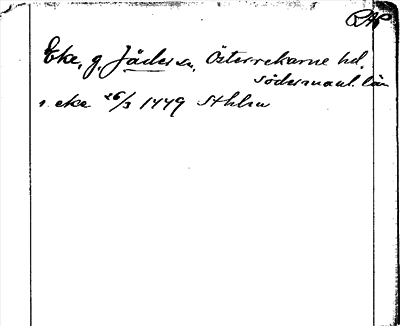 RAP
Eke, g, Jäder sn, Österrekarne hd.
Södermanl. län
i eke 26/3 1449 Sthlm